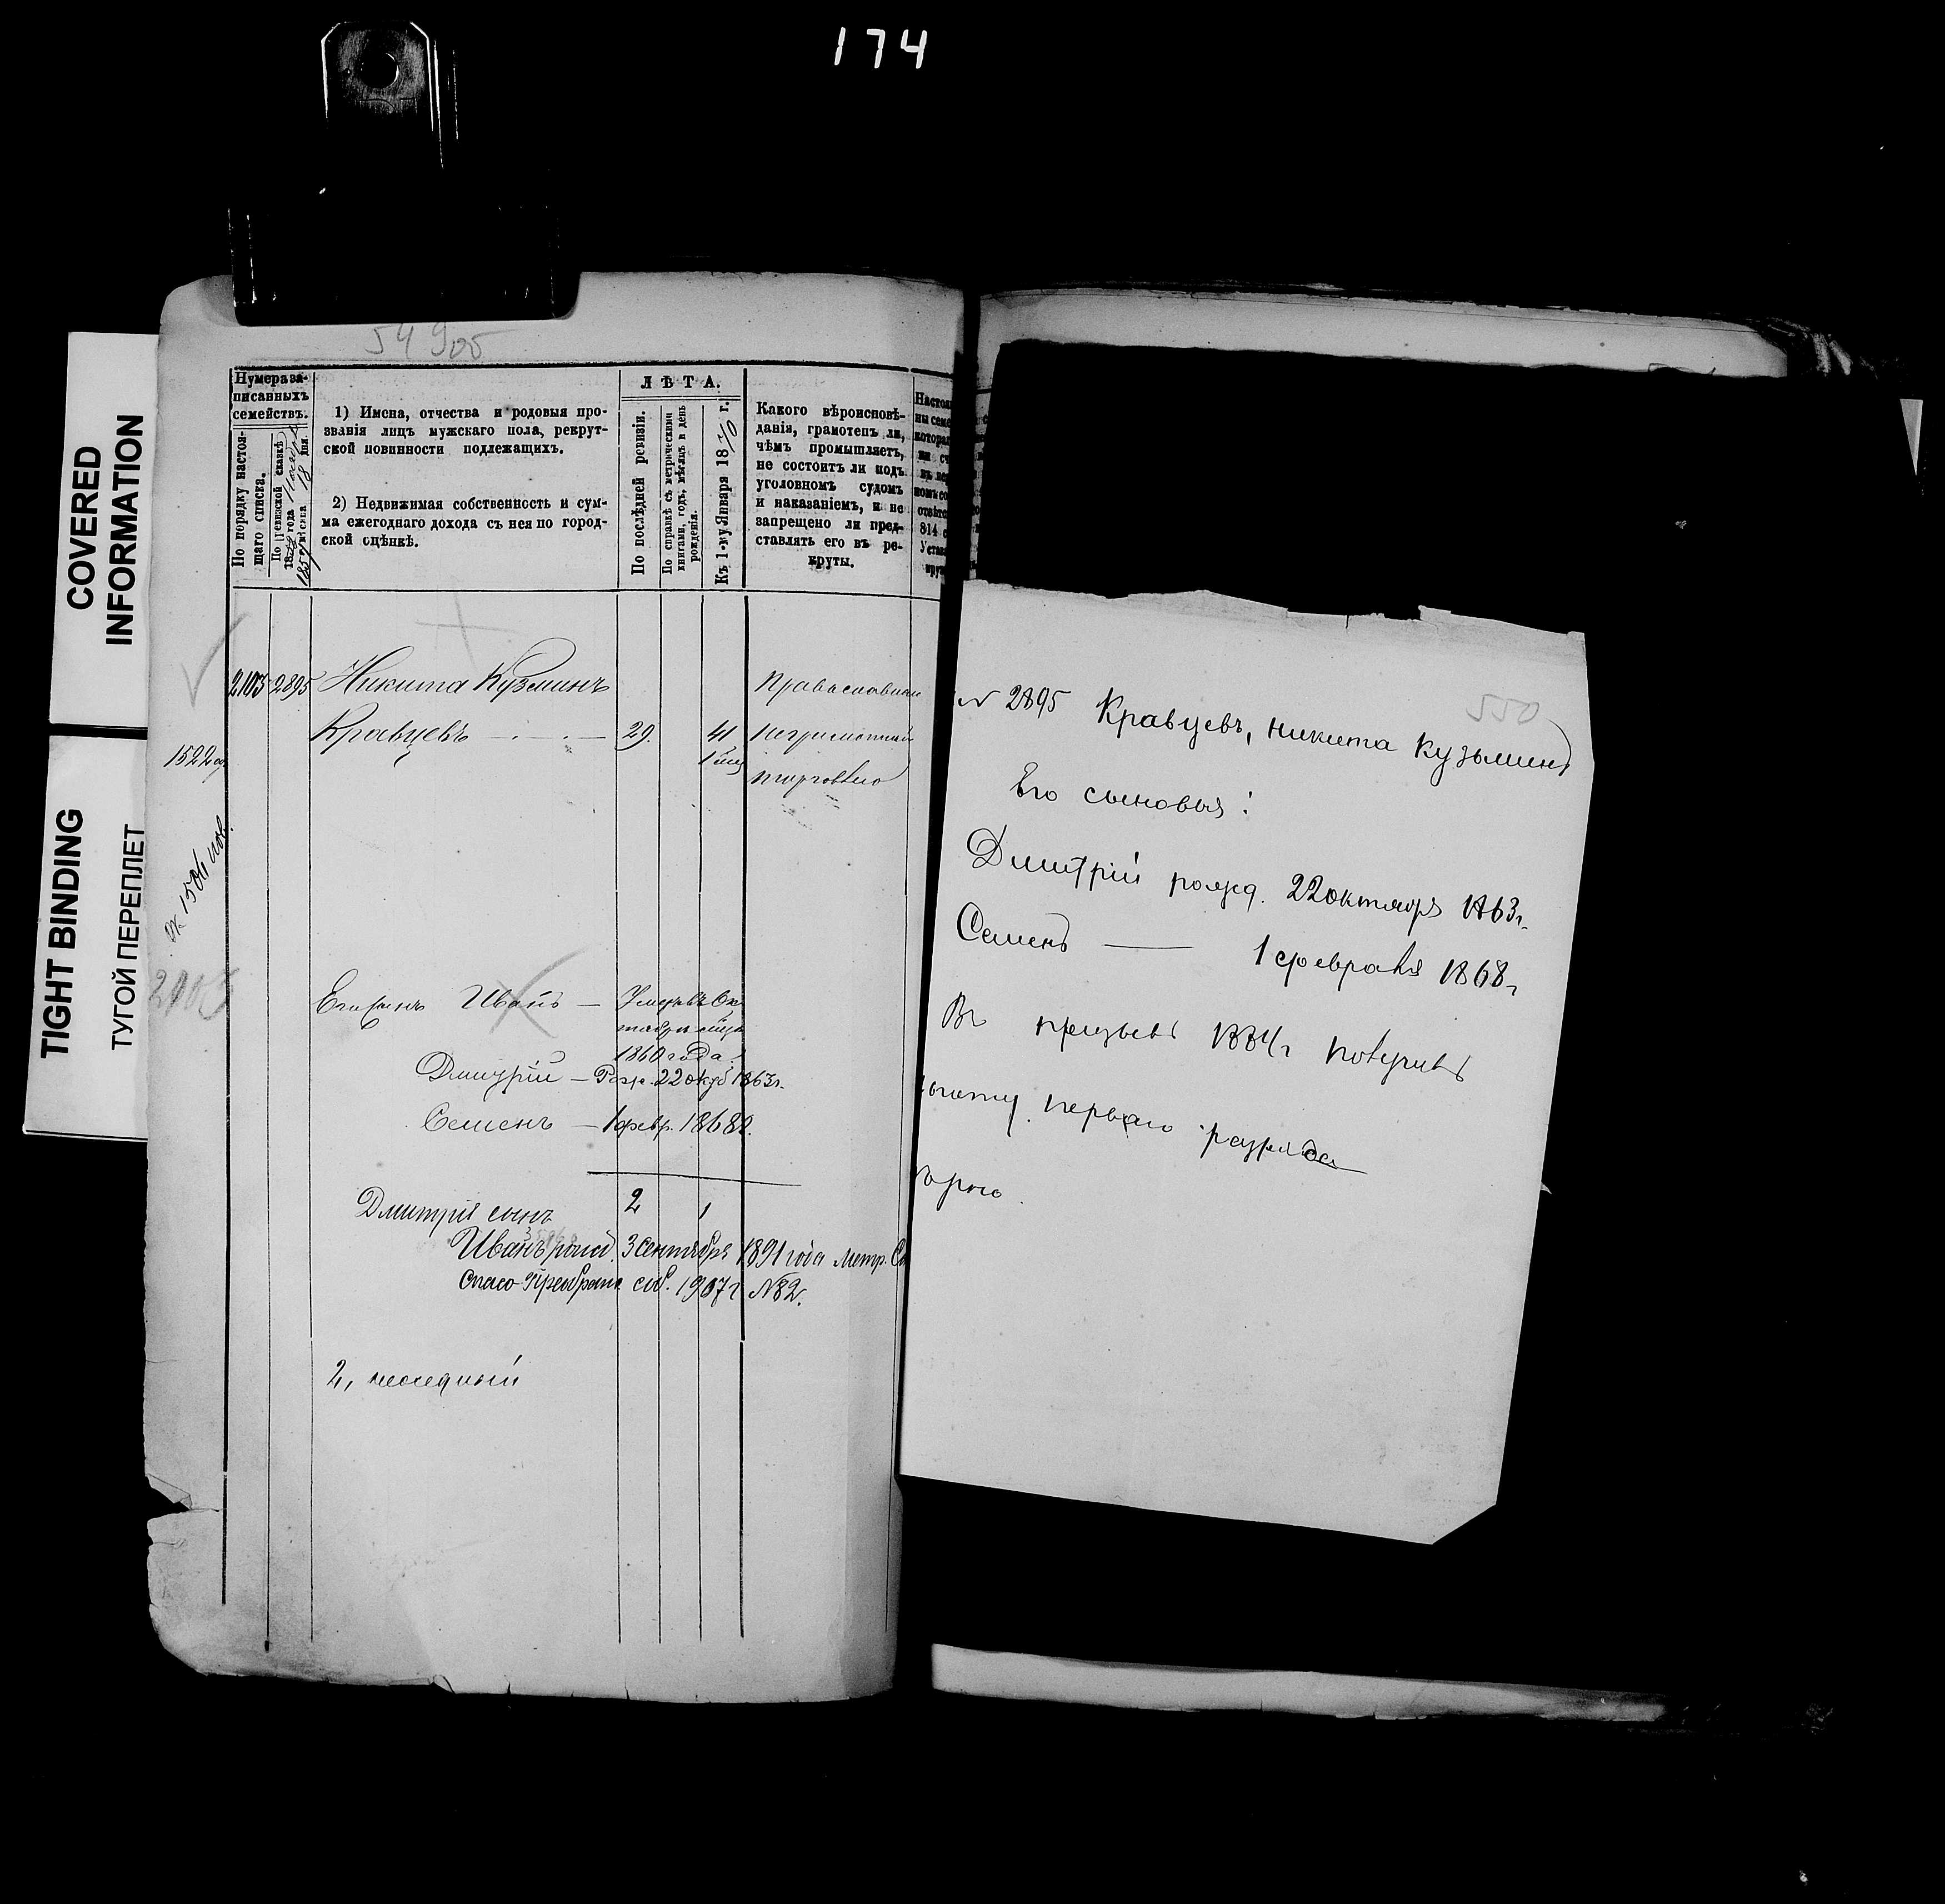 174
COVERED
INFORMATION
TIGHT BINDING
ТУГОЙ ПЕРЕПЛЕТ
54905
Нумера за-
писанныхъ
семействъ.
По порядку настоя-
щаго списка.
По ревизской сказкѣ
1) Имена, отчества и родовыя про-
званія лицъ мужскаго пола, рекрут-
ской повинности подлежащихъ.
2) Недвижимая собственность и сум-
ма ежегоднаго дохода съ нея по город-
ской оцѣнкѣ.
ЛѢТА.
По послѣдней ревизіи.
По справкѣ съ метрическими
книгами, годъ, мѣсяцъ и день
рожденія.
Къ 1-му Января 1870 г.
Какого вѣроисповѣ-
данія, грамотенъ ли,
чѣмъ промышляетъ,
не состоитъ ли подъ
уголовномъ судомъ
и наказаніемъ, и не
запрещено ли пред-
ставлять его въ ре-
круты.
2103 2895 Никита Кузминъ Православный
Кравцевъ 29. 41 Неграмотный
торговлею
1522
1506
2103
Его сынъ Иванъ — Умеръ въ Ок-
тябрѣ м-ца
1860 года.
Дмитрій — Рожд. 22 окт 1863 г.
Семенъ — 1 февр. 1868 г.
Дмитрія сынъ 2 1
Иванъ рожд. 3 сентября 1891 года Метр. Св
Спасо-Преображ. соб. 1907 г. №82.
2,
550
№ 2895 Кравцевъ, Никита Кузьминъ
Его сыновья:
Дмитрій рожд. 22 октября 1863 г.
Семенъ — 1 февраля 1868 г.
Въ призывъ 1884 г. получилъ
льготу перваго разряда